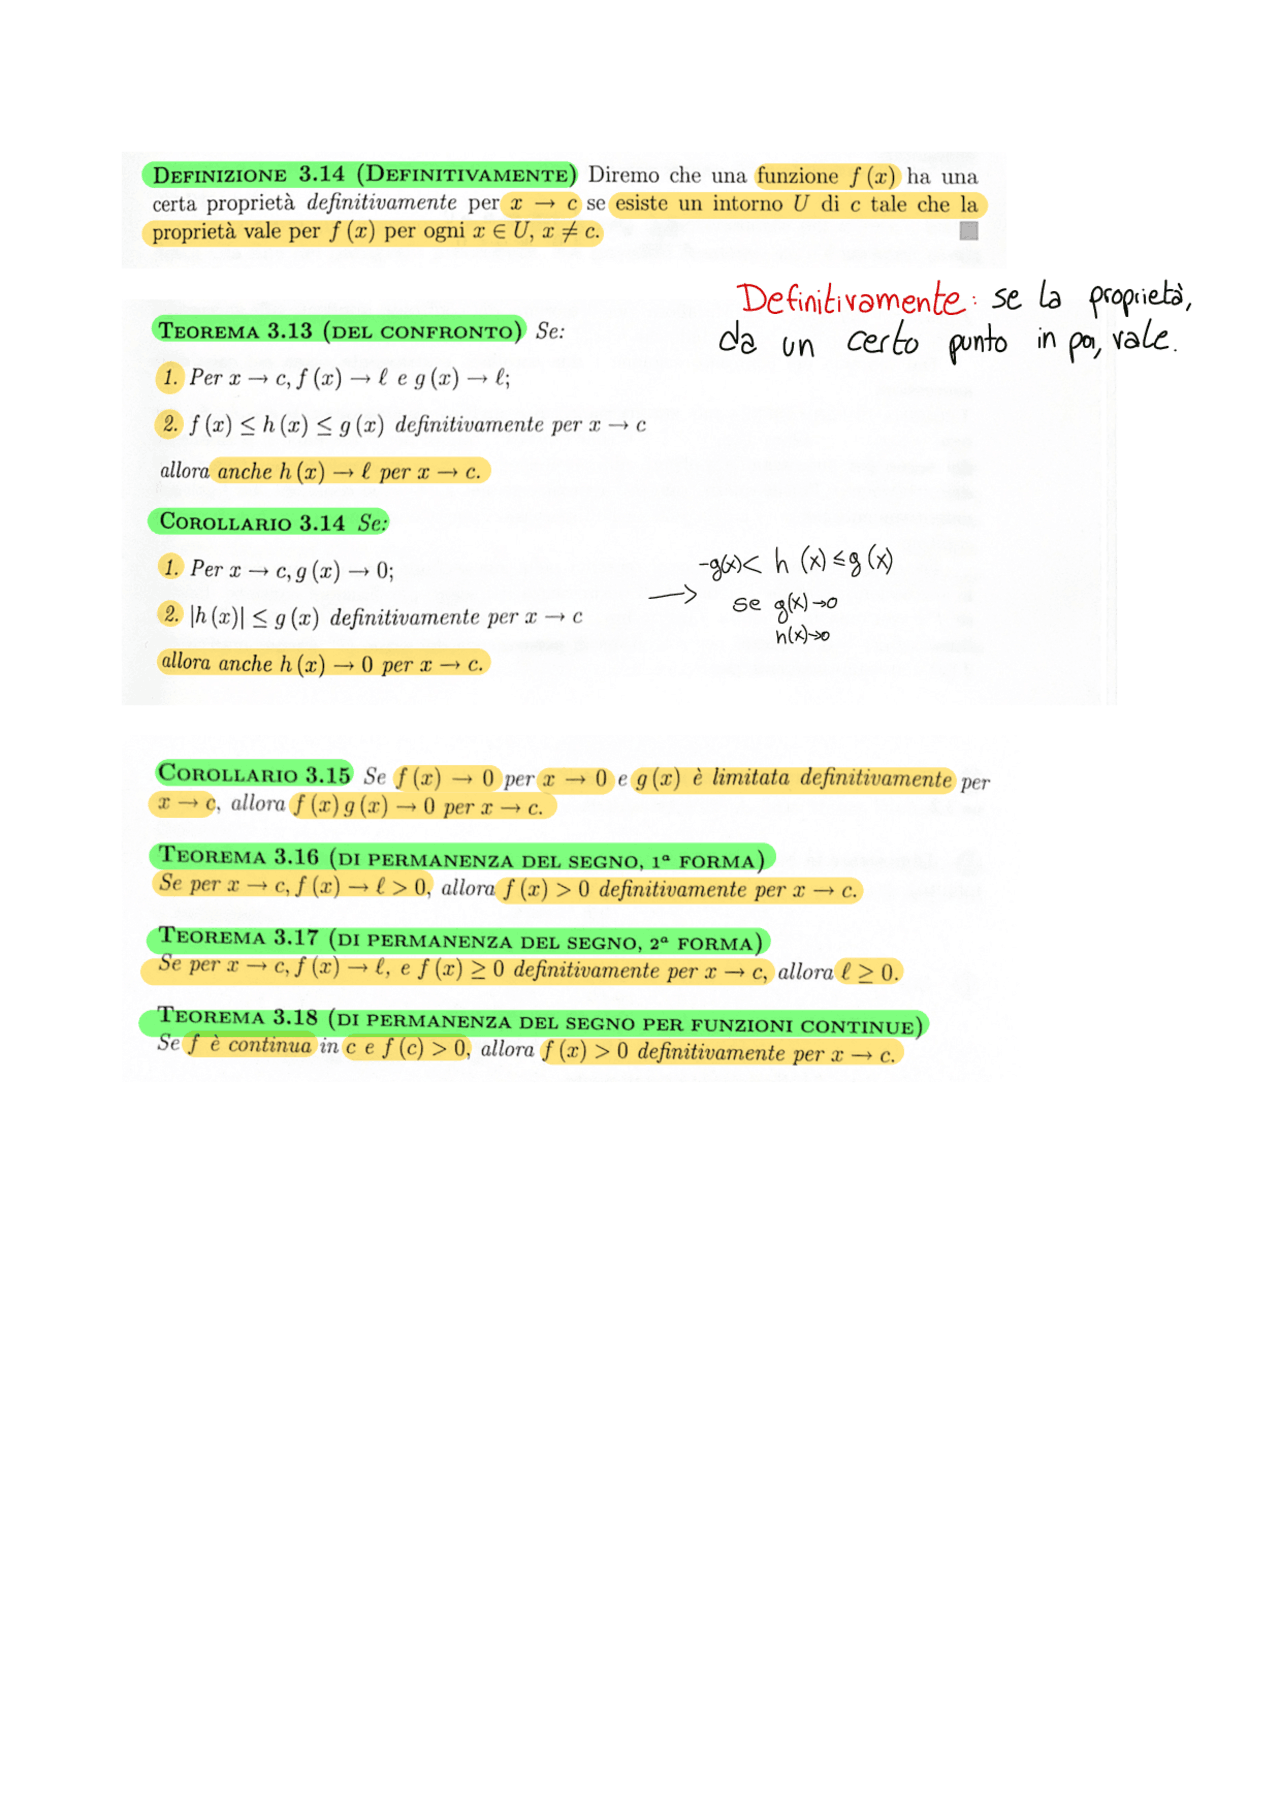 DEFINIZIONE 3.14 (DEFINITIVAMENTE) Diremo che una funzione f (x) ha una
certa proprietà definitivamente per x → c se esiste un intorno U di c tale che la
proprietà vale per f (x) per ogni x ∈ U, x ≠ c.
Definitivamente: se la proprietà,
da un certo punto in poi, vale.
TEOREMA 3.13 (DEL CONFRONTO) Se:
1. Per x → c, f (x) → ℓ e g (x) → ℓ;
2. f (x) ≤ h (x) ≤ g (x) definitivamente per x → c
allora anche h (x) → ℓ per x → c.
COROLLARIO 3.14 Se:
1. Per x → c, g (x) → 0;
2. |h (x)| ≤ g (x) definitivamente per x → c
allora anche h (x) → 0 per x → c.
→ -g(x)< h (x) ≤ g (x)
se g(x)→0
h(x)→0
COROLLARIO 3.15 Se f (x) → 0 per x → 0 e g (x) è limitata definitivamente per
x → c, allora f (x) g (x) → 0 per x → c.
TEOREMA 3.16 (DI PERMANENZA DEL SEGNO, 1ª FORMA)
Se per x → c, f (x) → ℓ > 0, allora f (x) > 0 definitivamente per x → c.
TEOREMA 3.17 (DI PERMANENZA DEL SEGNO, 2ª FORMA)
Se per x → c, f (x) → ℓ, e f (x) ≥ 0 definitivamente per x → c, allora ℓ ≥ 0.
TEOREMA 3.18 (DI PERMANENZA DEL SEGNO PER FUNZIONI CONTINUE)
Se f è continua in c e f (c) > 0, allora f (x) > 0 definitivamente per x → c.